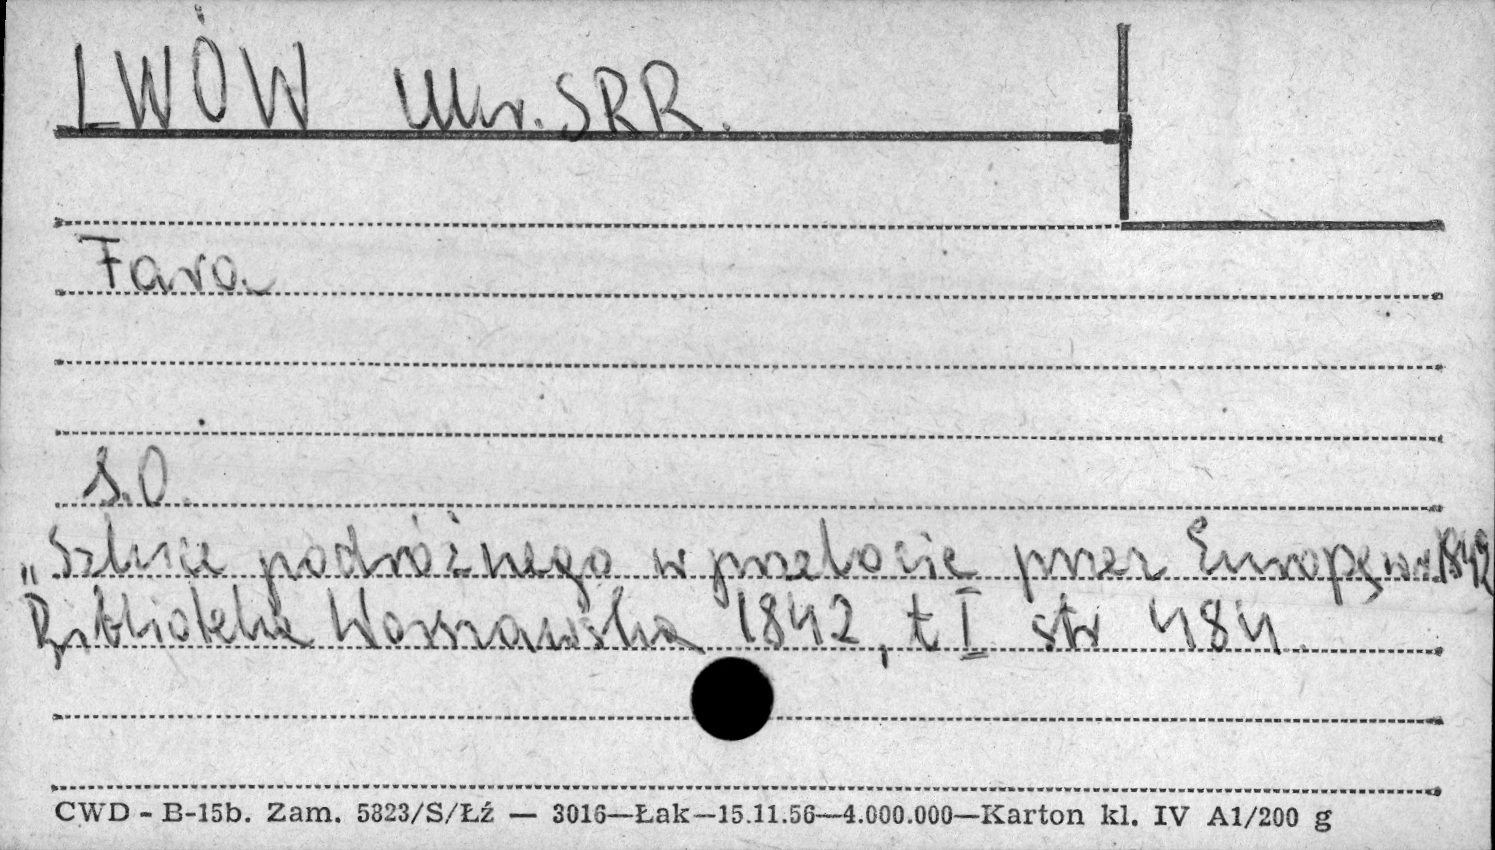 LWÓW Ukr. SRR.
Fara
S.O.
„Szkice podróżnego w przelocie przez Europę w r. 1842
Biblioteka Warszawska 1842, t I str 484.
CWD - B-15b. Zam. 5823/S/Łź — 3016—Łak—15.11.56—4.000.000—Karton kl. IV A1/200 g